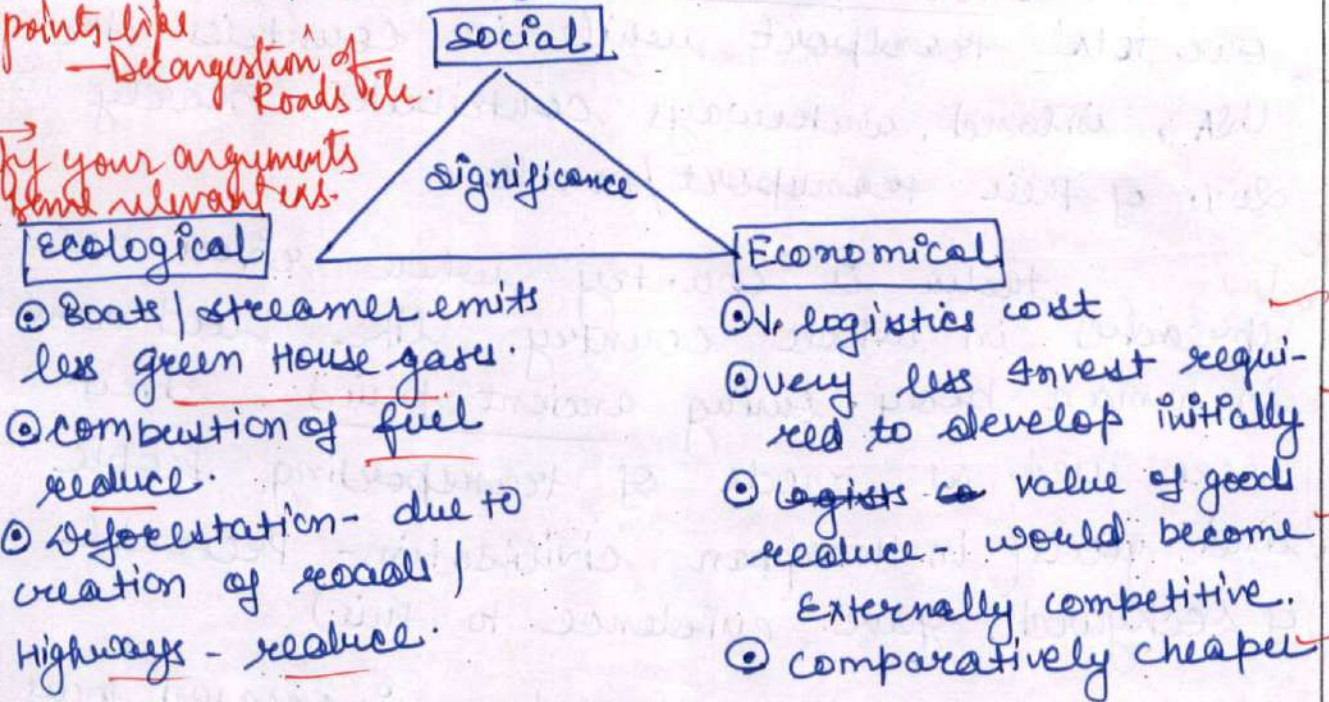 points like
— Decongestion of
Roads etc.
→
your arguments
relevant
Social
Significance
Ecological
⊙ Boats / streamer emits
less green House gases.
⊙ combustion of fuel
reduce.
⊙ Deforestation - due to
creation of roads /
Highways - reduce.
Economical
⊙ ↓ logistics cost
⊙ very less Invest requi-
red to develop initially
⊙ value of goods
reduce - would become
Externally competitive.
⊙ comparatively cheaper